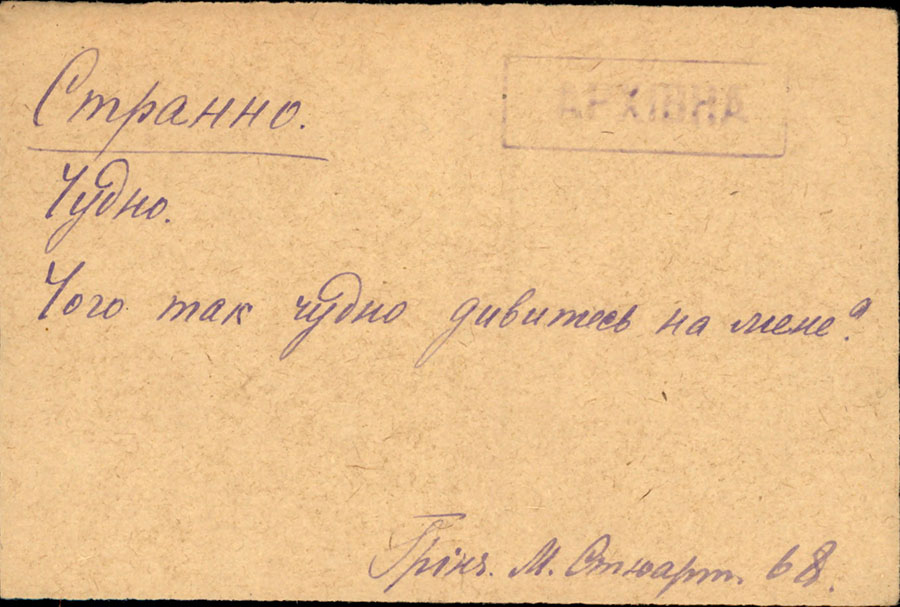 Странно.
АРХІВНА
Чудно.
Чого так чудно дивитесь на мене?
Грінч. М. Стюарт. 68.